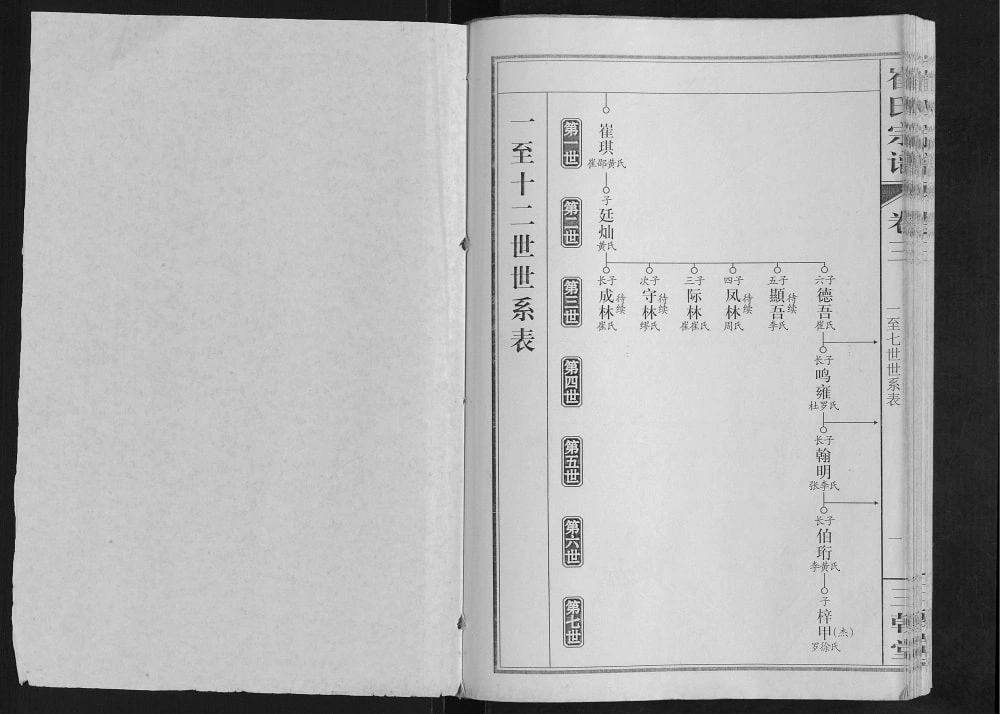 一至十二世世系表
第一世
崔琪
崔邵黄氏
第二世
子
廷灿
黄氏
第三世
长子
成林
待续
崔氏
次子
守林
待续
缪氏
三子
际林
崔崔氏
四子
凤林
待续
周氏
五子
顯吾
待续
李氏
六子
德吾
崔氏
第四世
长子
鸣雍
杜罗氏
第五世
长子
翰明
张李氏
第六世
长子
伯珩
李黄氏
第七世
子
梓甲(杰)
罗徐氏
崔氏宗谱
卷三
一至七世世系表
一
三朝堂